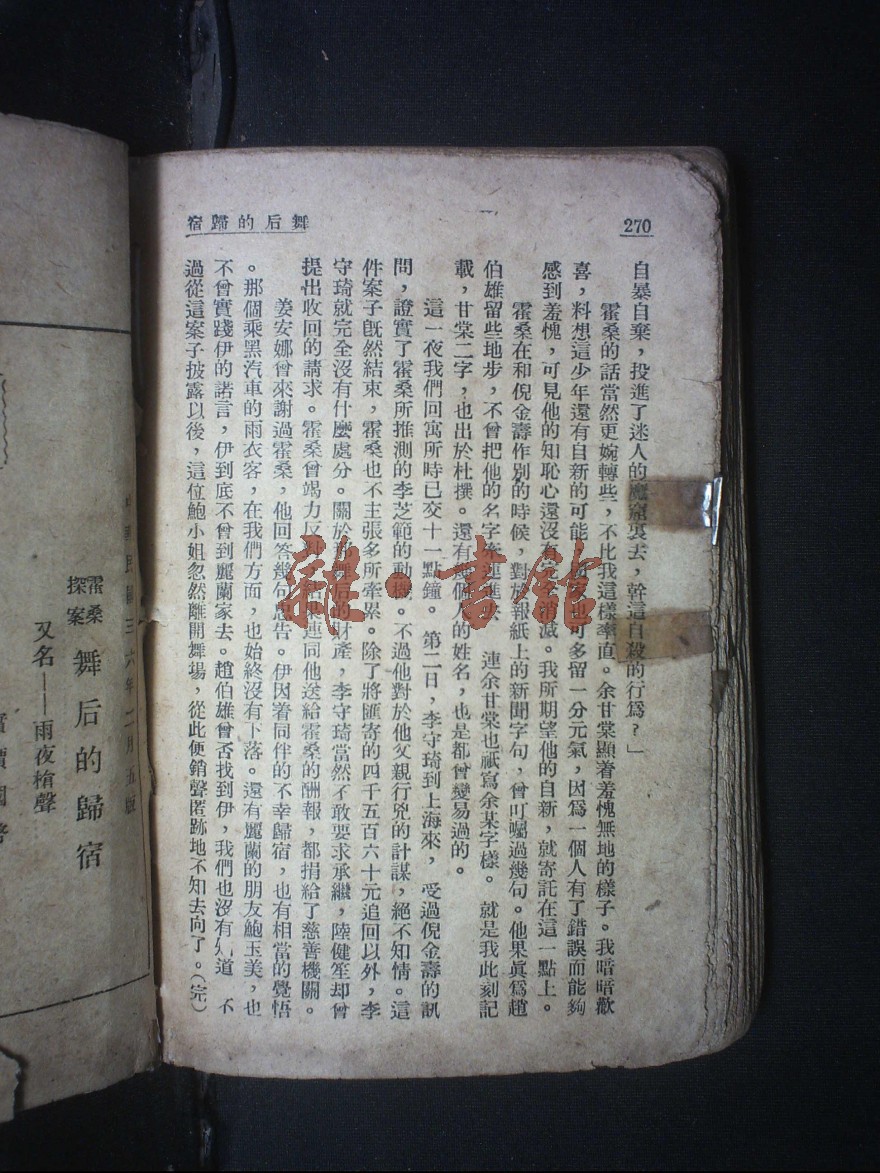 270
舞后的歸宿
自暴自棄，投進了迷人的魔窟裏去，幹這自殺的行爲？」
霍桑的話當然更婉轉些，不比我這樣率直。余甘棠顯着羞愧無地的樣子。我暗暗歡
喜，料想這少年還有自新的可能，國家也可多留一分元氣，因爲一個人有了錯誤而能夠
感到羞愧，可見他的知恥心還沒有完全消滅。我所期望他的自新，就寄託在這一點上。
霍桑在和倪金壽作別的時候，對於報紙上的新聞字句，曾叮囑過幾句。他果眞爲趙
伯雄留些地步，不曾把他的名字牽連進去 連余甘棠也祇寫余某字樣。就是我此刻記
載，甘棠二字，也出於杜撰。還有幾個人的姓名，也是都曾變易過的。
這一夜我們回寓所時已交十一點鐘。第二日，李守琦到上海來，受過倪金壽的訊
問，證實了霍桑所推測的李芝範的動機。不過他對於他父親行兇的計謀，絕不知情。這
件案子旣然結束，霍桑也不主張多所牽累。除了將匯寄的四千五百六十元追回以外，李
守琦就完全沒有什麼處分。關於 舞后的財產，李守琦當然不敢要求承繼，陸健笙却曾
提出收回的請求。霍桑曾竭力反對，結果連同他送給霍桑的酬報，都捐給了慈善機關。
姜安娜曾來謝過霍桑，他回答幾句忠告。伊因着同伴的不幸歸宿，也有相當的覺悟
。那個乘黑汽車的雨衣客，在我們方面，也始終沒有下落。還有麗蘭的朋友鮑玉美，也
不曾實踐伊的諾言，伊到底不曾到麗蘭家去。趙伯雄曾否找到伊，我們也沒有 道 不
過從這案子披露以後，這位鮑小姐忽然離開舞場，從此便銷聲匿跡地不知去向了。（完）
國民三六年二月五版
霍桑探案
舞后的歸宿
又名——雨夜槍聲
實價國幣
雜·書館